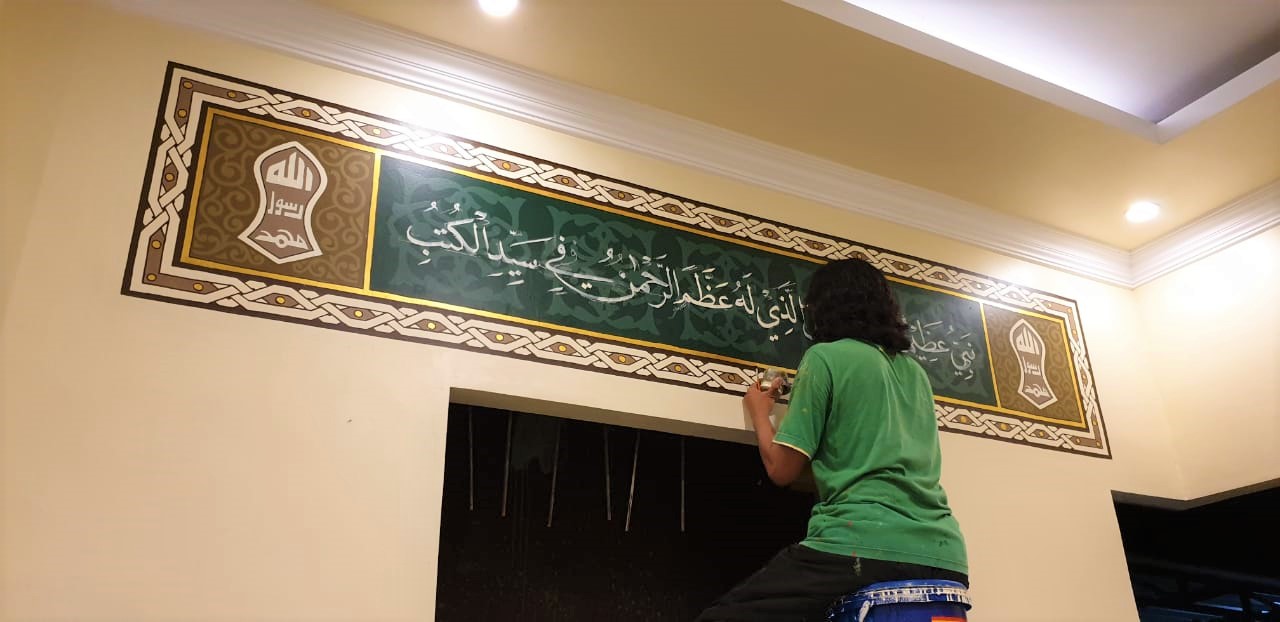 الله
رسول
محمد
نَبِيٌّ عَظِيْمٌ الَّذِيْ لَهُ عَظَّمَ الرَّحْمٰنُ فِي سَيِّدِ الْكُتُبِ
الله
رسول
محمد